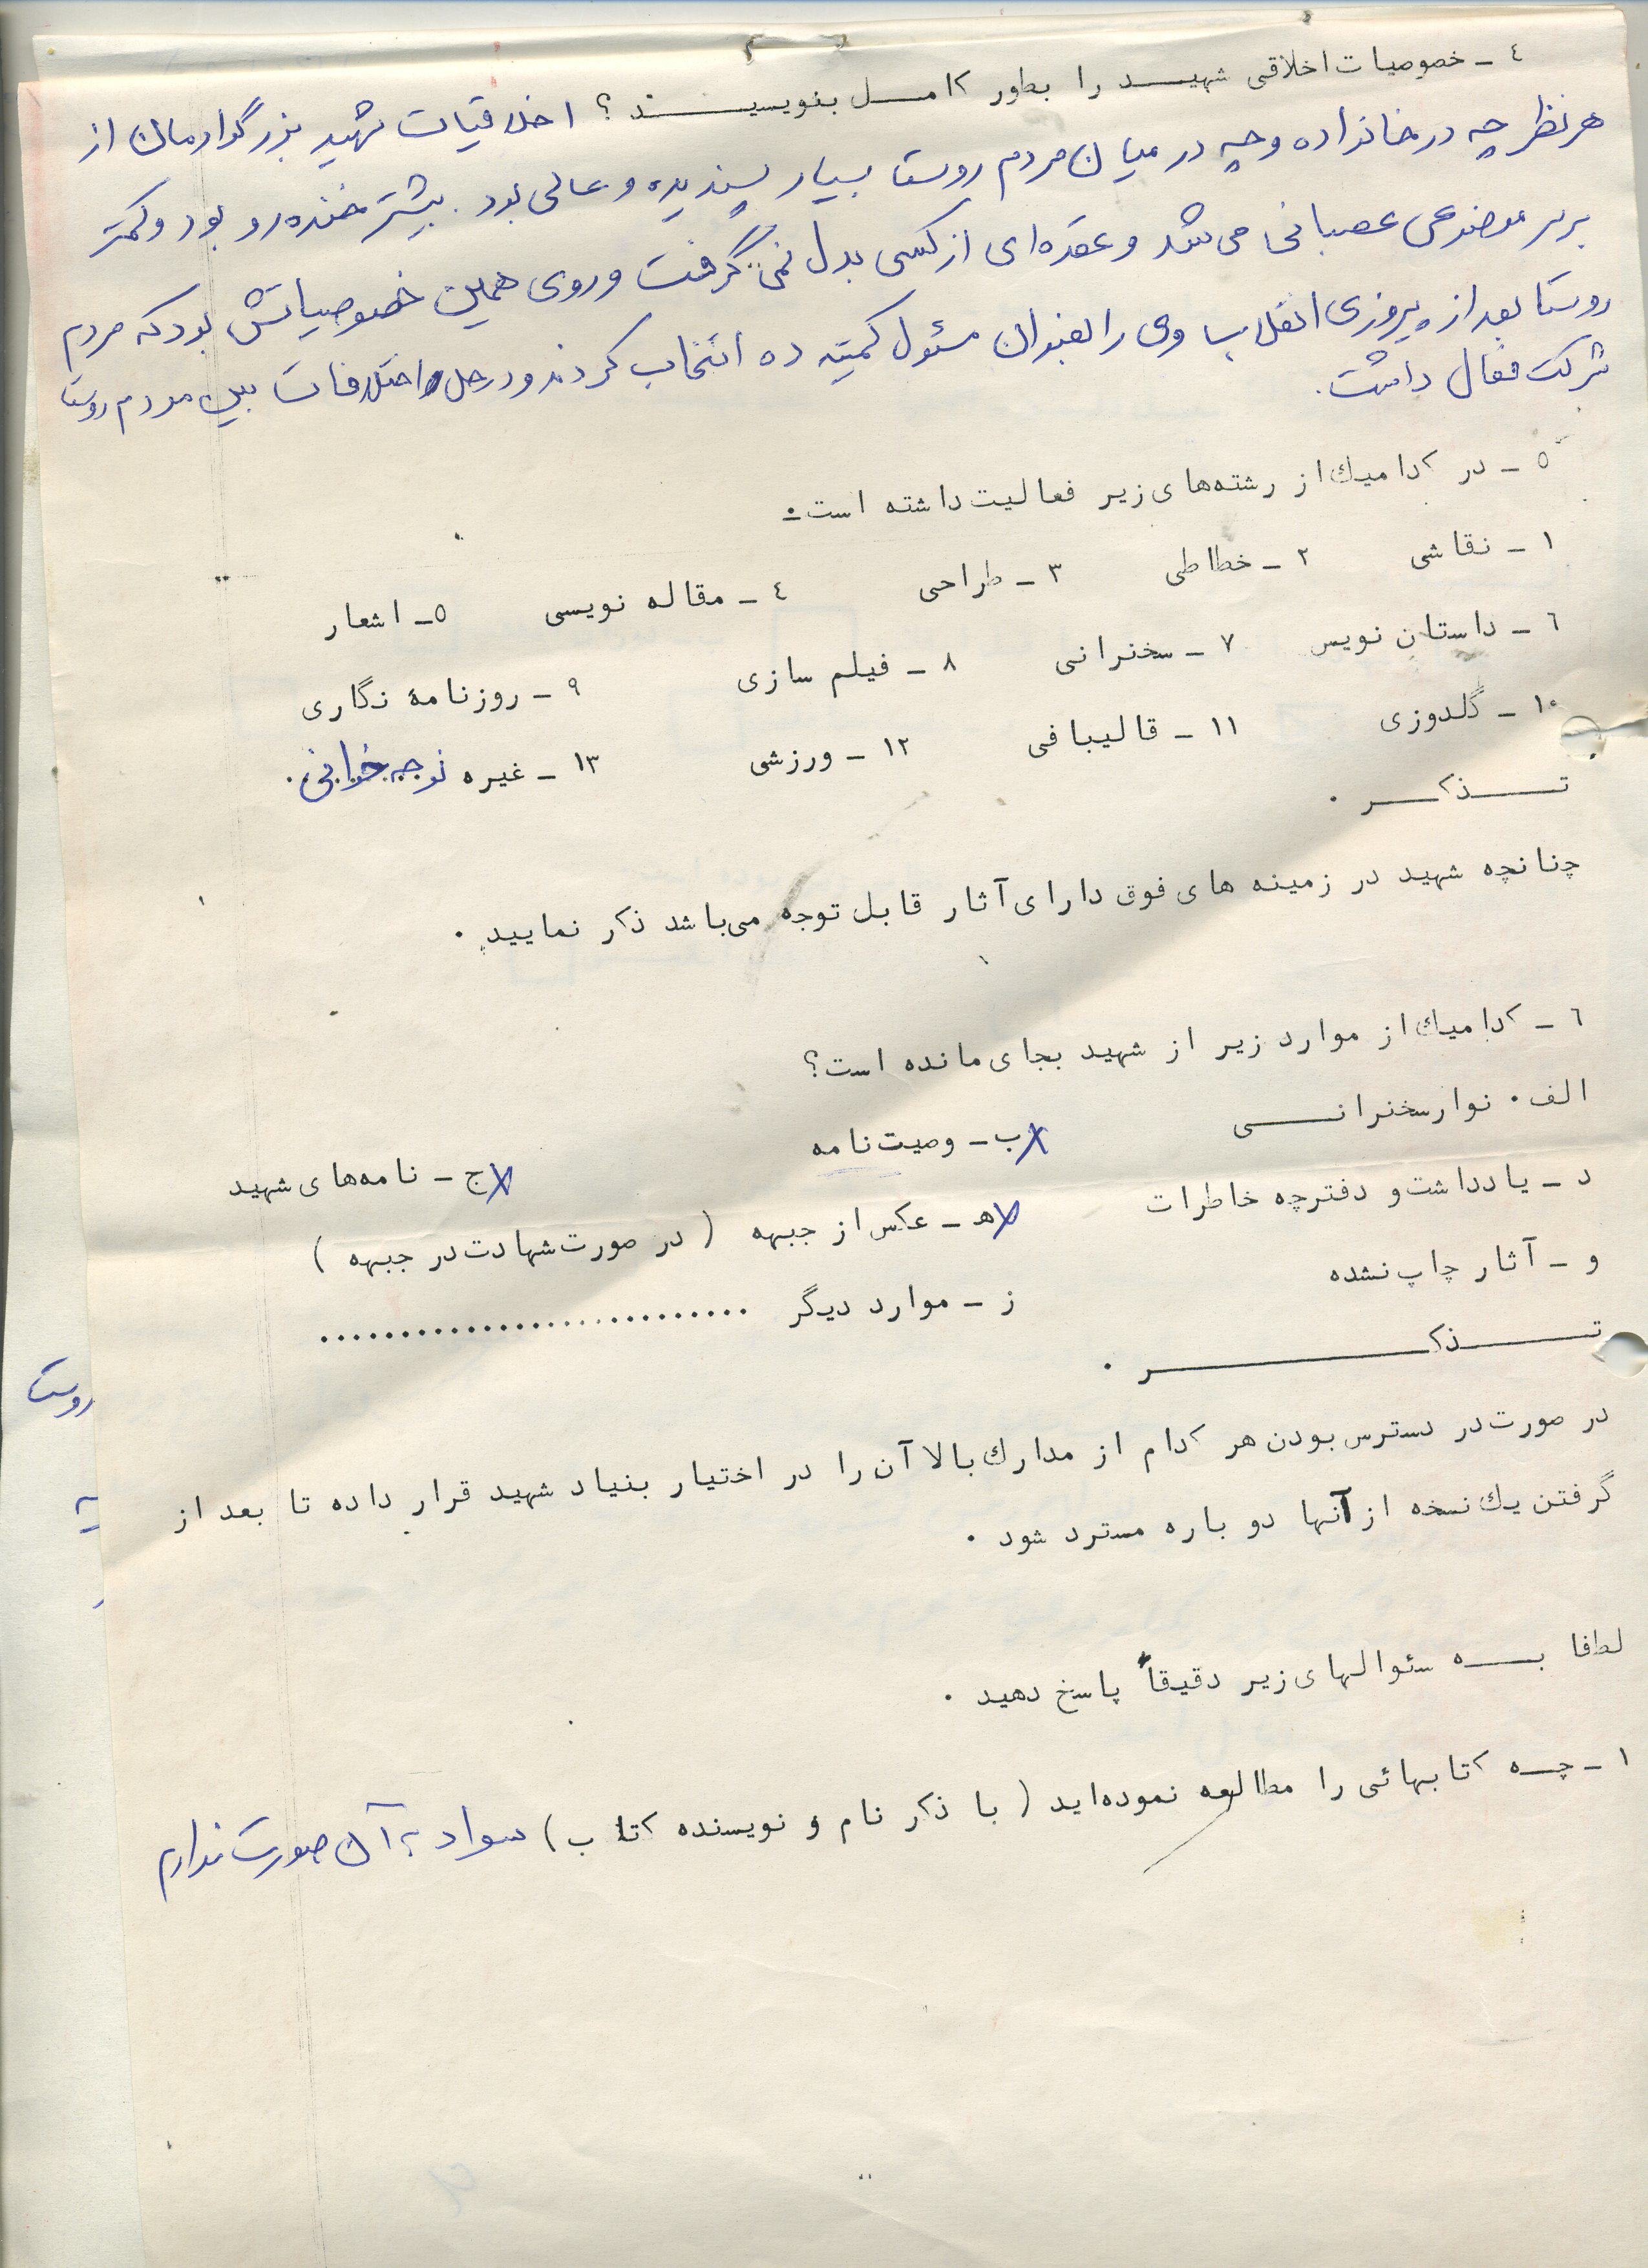 ٤ ـ خصوصیات اخلاقی شهیــد را بطور کامــل بنویسیــــند ؟ اخلاقیات شهید بزرگوارمان از
هر نظر چه در خانواده و چه در میان مردم روستا بسیار پسندیده و عالی بود . بیشتر خنده رو بود و کمتر
بر سر موضوعی عصبانی می شد و عقده ای از کسی بدل نمی گرفت و روی همین خصوصیاتش بود که مردم
روستا بعد از پیروزی انقلاب وی را بعنوان مسئول کمیته ده انتخاب کردند و در حل اختلافات بین مردم روستا
شرکت فعال داشت .
٥ ـ در کدامیك از رشته‌های زیر فعالیت داشته است .
١ ـ نقاشی ٢ ـ خطاطی ٣ ـ طراحی ٤ ـ مقاله نویسی ٥ـ اشعار
٦ ـ داستان نویس ٧ ـ سخنرانی ٨ ـ فیلم سازی ٩ ـ روزنامهٔ نگاری
١٠ ـ گلدوزی ١١ ـ قالیبافی ١٢ ـ ورزشی ١٣ ـ غیره نوحه خوانی .
تــــذکــــر .
چنانچه شهید در زمینه های فوق دارای آثار قابل توجه می‌باشد ذکر نمایید .
٦ ـ کدامیك از موارد زیر از شهید بجای مانده است؟
الف . نوار سخنرانـــی ب ـ وصیت‌نامه ج ـ نامه‌های شهید
د ـ یادداشت و دفترچه خاطرات هـ ـ عکس از جبهه ( در صورت شهادت در جبهه )
و ـ آثار چاپ نشده ز ـ موارد دیگر ............................
تــــــذکــــــــــر .
در صورت در دسترس بودن هر کدام از مدارك بالا آن را در اختیار بنیاد شهید قرار داده تا بعد از
گرفتن یك نسخه از آنها دو باره مسترد شود .
لطفا بــه سئوالهای زیر دقیقاً پاسخ دهید .
١ ـ چــه کتابهائی را مطالعه نموده‌اید ( با ذکر نام و نویسنده کتاب ) سواد به آن صورت ندارم
روست